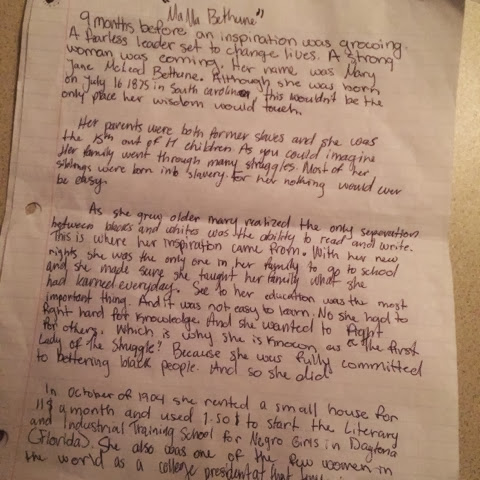 "Ma Ma Bethune"
9 months before an inspiration was growing.
A fearless leader set to change lives. A strong
woman was coming. Her name was Mary
Jane McLeod Bethune. Although she was born
on July 10 1875 in South carolina, this wouldn't be the
only place her wisdom would touch.
Her parents were both former slaves and she was
the 15th out of 17 children. As you could imagine
Her family went through many struggles. Most of her
siblings were born into slavery. For her nothing would ever
be easy.
As she grew older mary realized the only seperation
between blacks and whites was the ability to read and write.
This is where her inspiration came from. With her new
rights she was the only one in her family to go to school
and she made sure she taught her family what she
had learned everyday. See to her education was the most
important thing. And it was not easy to learn. No she had to
fight hard for knowledge. And she wanted to fight
for others. Which is why she is known as "The first
Lady of The Struggle" Because she was fully committed
to bettering black people. And so she did
In October of 1904 she rented a small house for
11$ a month and used 1.50$ to start the Literary
and Industrial Training School for Negro Girls in Daytona
(Florida). She also was one of the few women in
the world as a college president at that